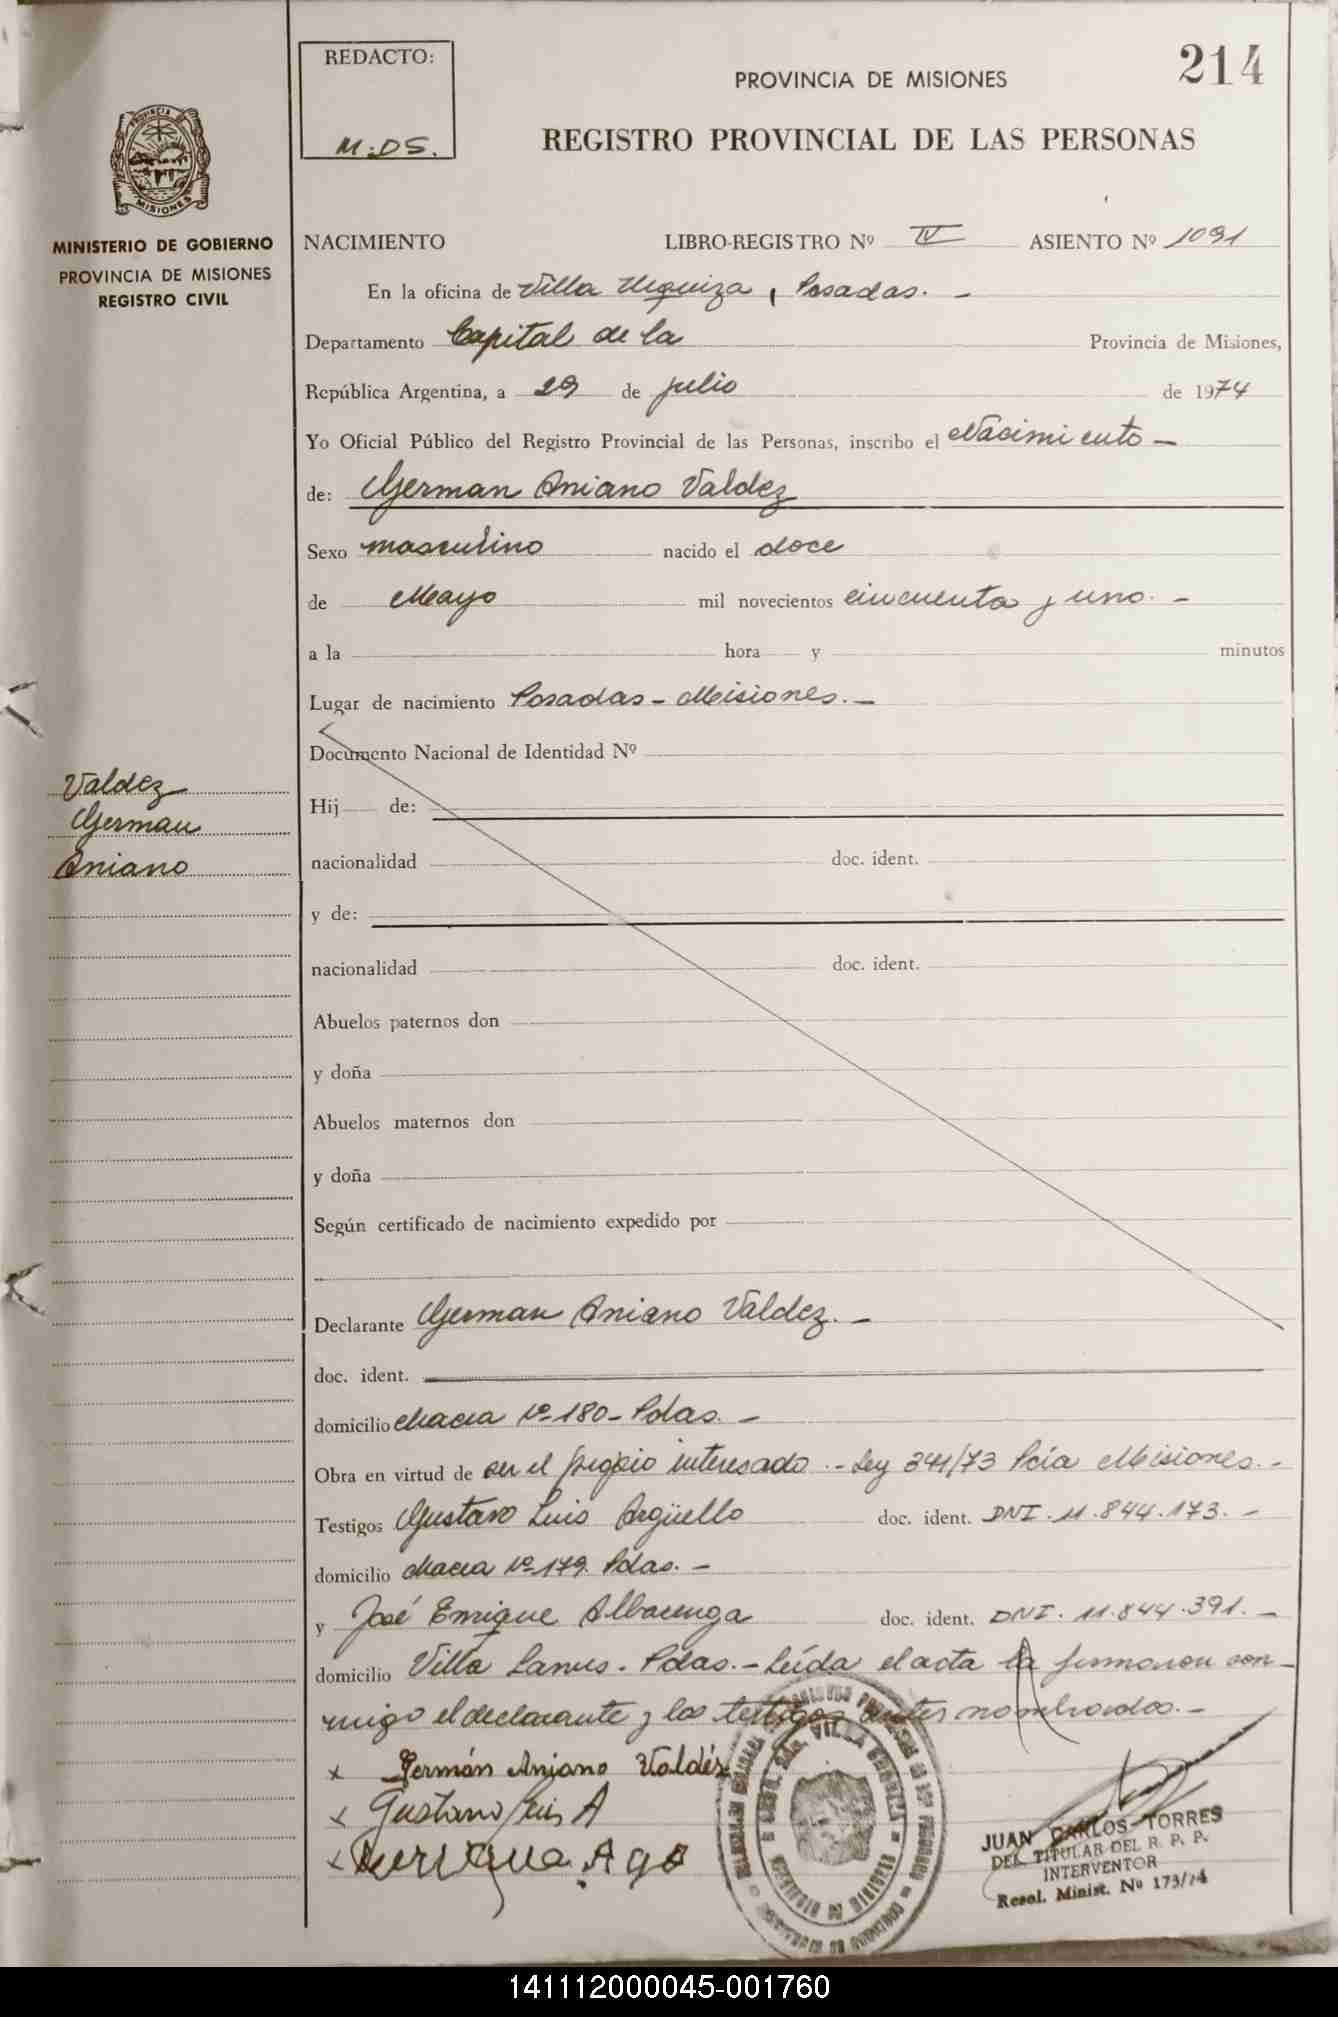 REDACTO:
M.DS.
214
PROVINCIA DE MISIONES
REGISTRO PROVINCIAL DE LAS PERSONAS
MISIONES
MINISTERIO DE GOBIERNO
PROVINCIA DE MISIONES
REGISTRO CIVIL
NACIMIENTO LIBRO-REGISTRO Nº IV ASIENTO Nº 1091
En la oficina de Villa Urquiza, Posadas. -
Departamento Capital de la Provincia de Misiones,
República Argentina, a 29 de julio de 1974
Yo Oficial Público del Registro Provincial de las Personas, inscribo el Nacimiento -
de: German Aniano Valdez
Sexo masculino nacido el doce
de Mayo mil novecientos cincuenta y uno. -
a la hora y minutos
Lugar de nacimiento Posadas - Misiones. -
Documento Nacional de Identidad Nº
Valdez
German
Aniano
Hij de:
nacionalidad doc. ident.
y de:
nacionalidad doc. ident.
Abuelos paternos don
y doña
Abuelos maternos don
y doña
Según certificado de nacimiento expedido por
Declarante German Aniano Valdez. -
doc. ident.
domicilio Chacra Nº 180 - Pdas. -
Obra en virtud de ser el propio interesado. - Ley 341/73 Pcia Misiones. -
Testigos Gustavo Luis Argüello doc. ident. DNI. 11.844.173. -
domicilio Chacra Nº 179. Pdas. -
y José Enrique Albarenga doc. ident. DNI. 11.844.391. -
domicilio Villa Lanus. Pdas. - Leída el acta la firmaron con-
migo el declarante y los testigos antes nombrados. -
x Germán Aniano Valdéz
x Gustavo Luis A
x
JUAN CARLOS TORRES
DEL TITULAR DEL R. P. P.
INTERVENTOR
Resol. Minist. Nº 173/74
VILLA URQUIZA
141112000045-001760